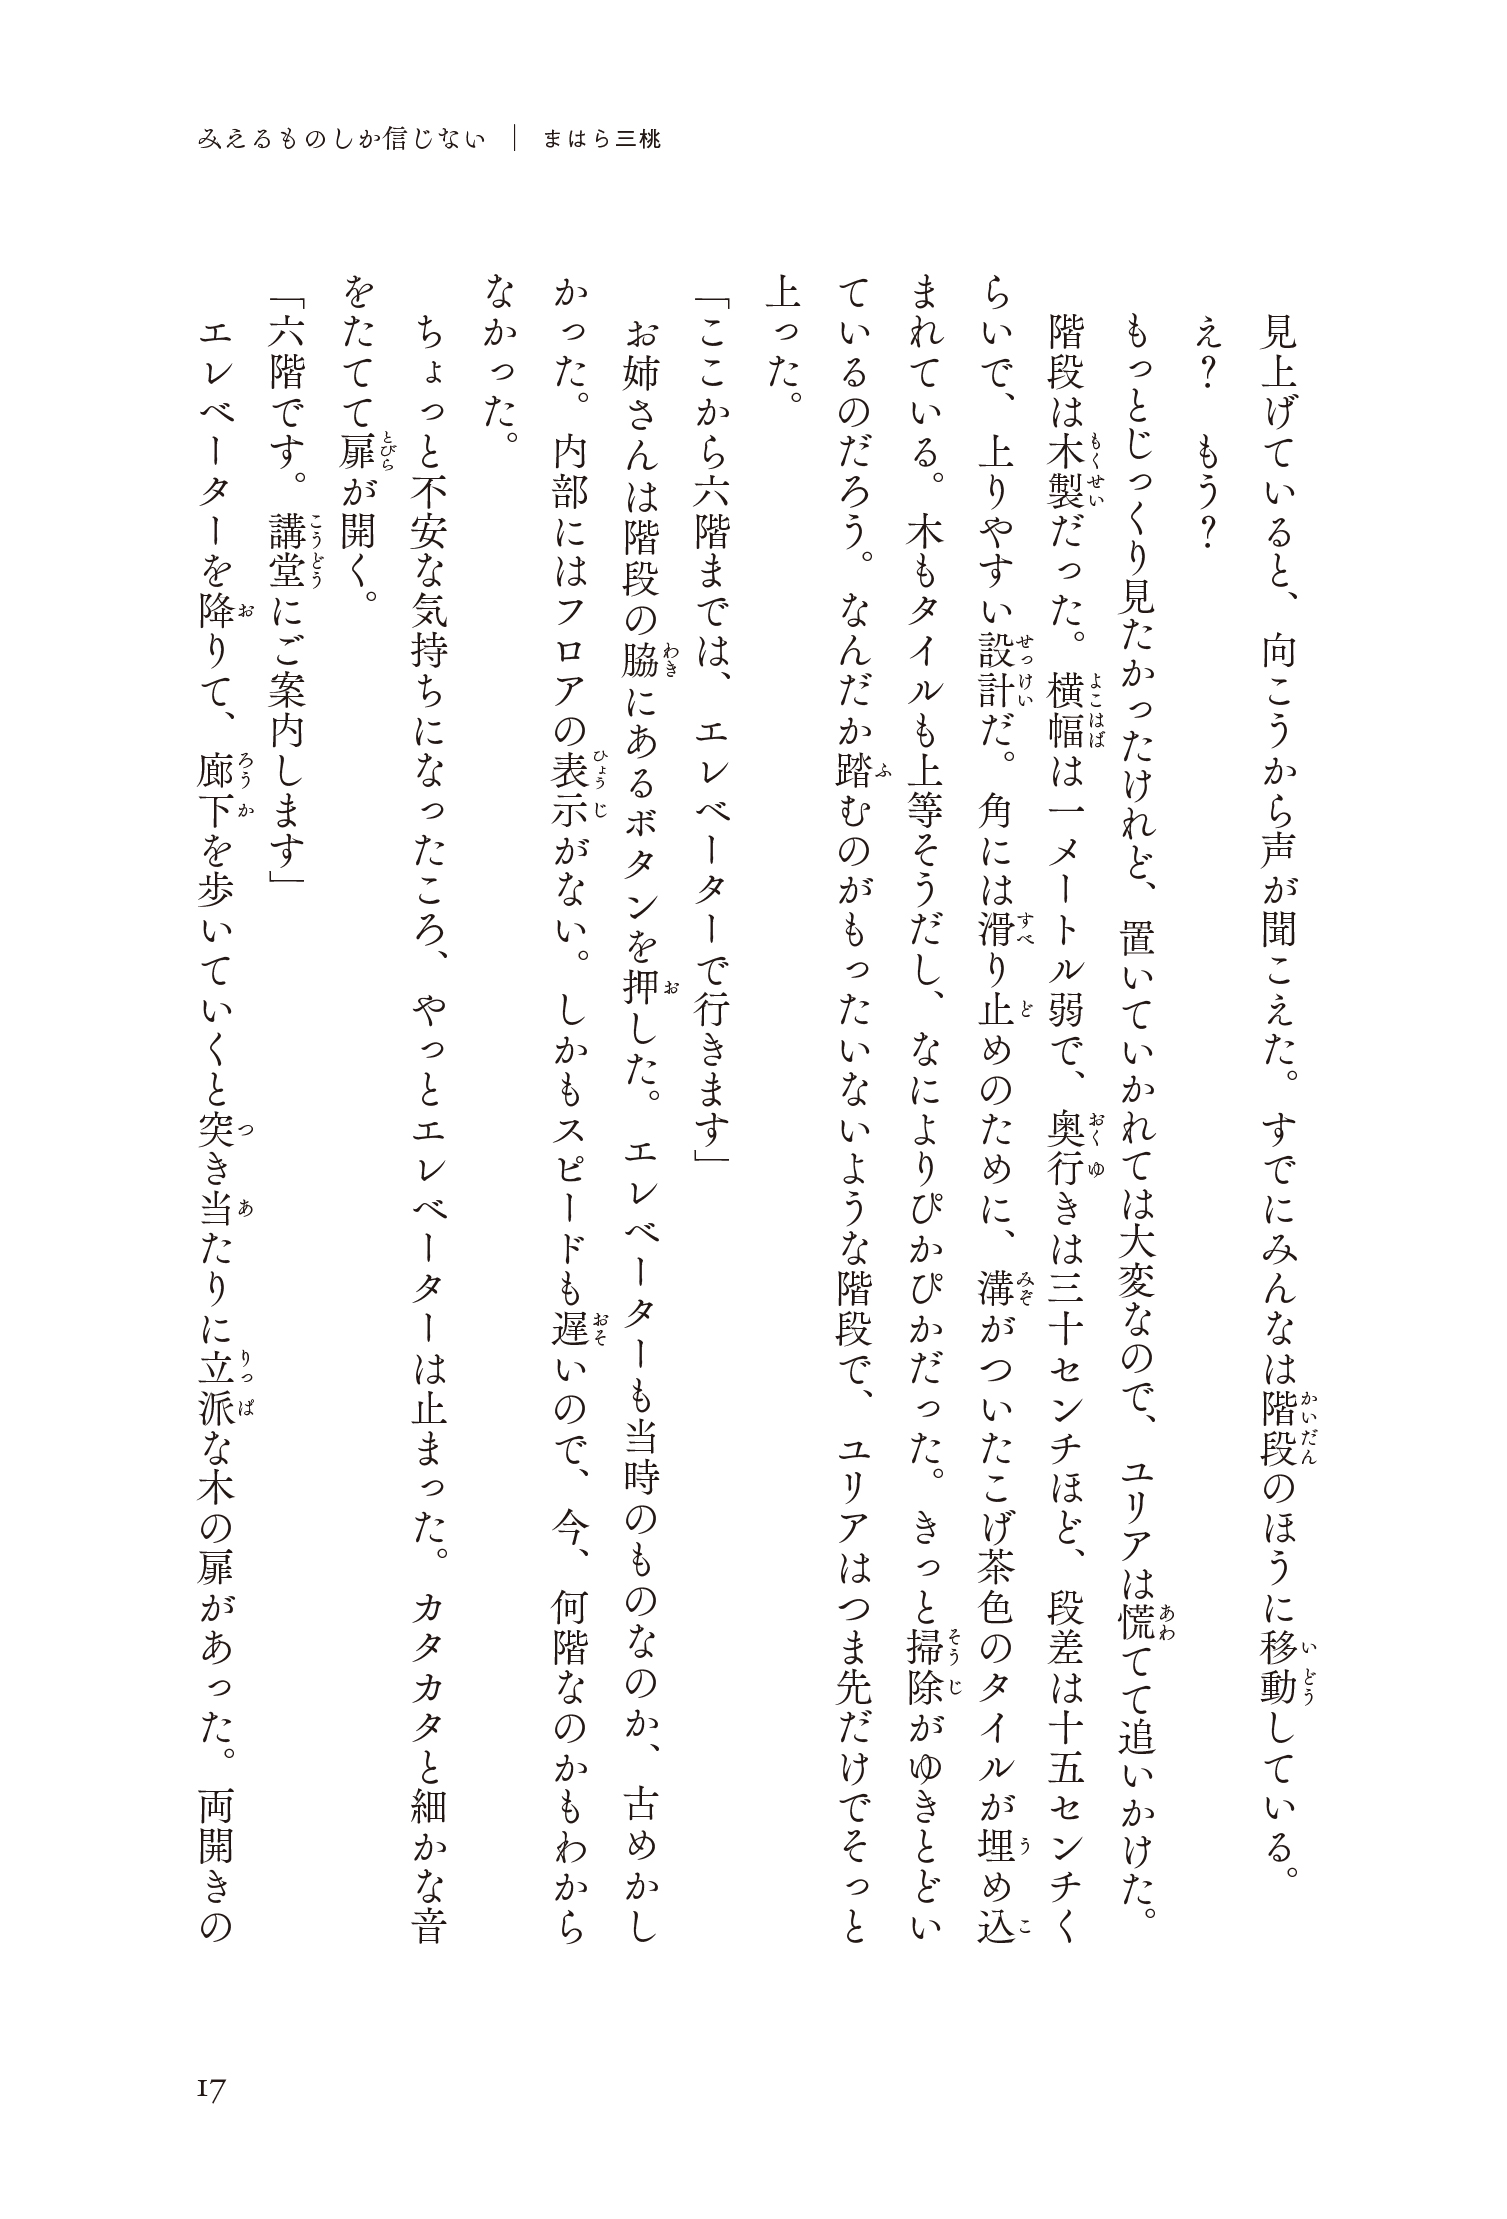 みえるものしか信じない｜まはら三桃
見上げていると、向こうから声が聞こえた。すでにみんなは階段のほうに移動している。
え？　もう？
もっとじっくり見たかったけれど、置いていかれては大変なので、ユリアは慌てて追いかけた。
階段は木製だった。横幅は一メートル弱で、奥行きは三十センチほど、段差は十五センチく
らいで、上りやすい設計だ。角には滑り止めのために、溝がついたこげ茶色のタイルが埋め込
まれている。木もタイルも上等そうだし、なによりぴかぴかだった。きっと掃除がゆきとどい
ているのだろう。なんだか踏むのがもったいないような階段で、ユリアはつま先だけでそっと
上った。
「ここから六階までは、エレベーターで行きます」
お姉さんは階段の脇にあるボタンを押した。エレベーターも当時のものなのか、古めかし
かった。内部にはフロアの表示がない。しかもスピードも遅いので、今、何階なのかもわから
なかった。
ちょっと不安な気持ちになったころ、やっとエレベーターは止まった。カタカタと細かな音
をたてて扉が開く。
「六階です。講堂にご案内します」
エレベーターを降りて、廊下を歩いていくと突き当たりに立派な木の扉があった。両開きの
17